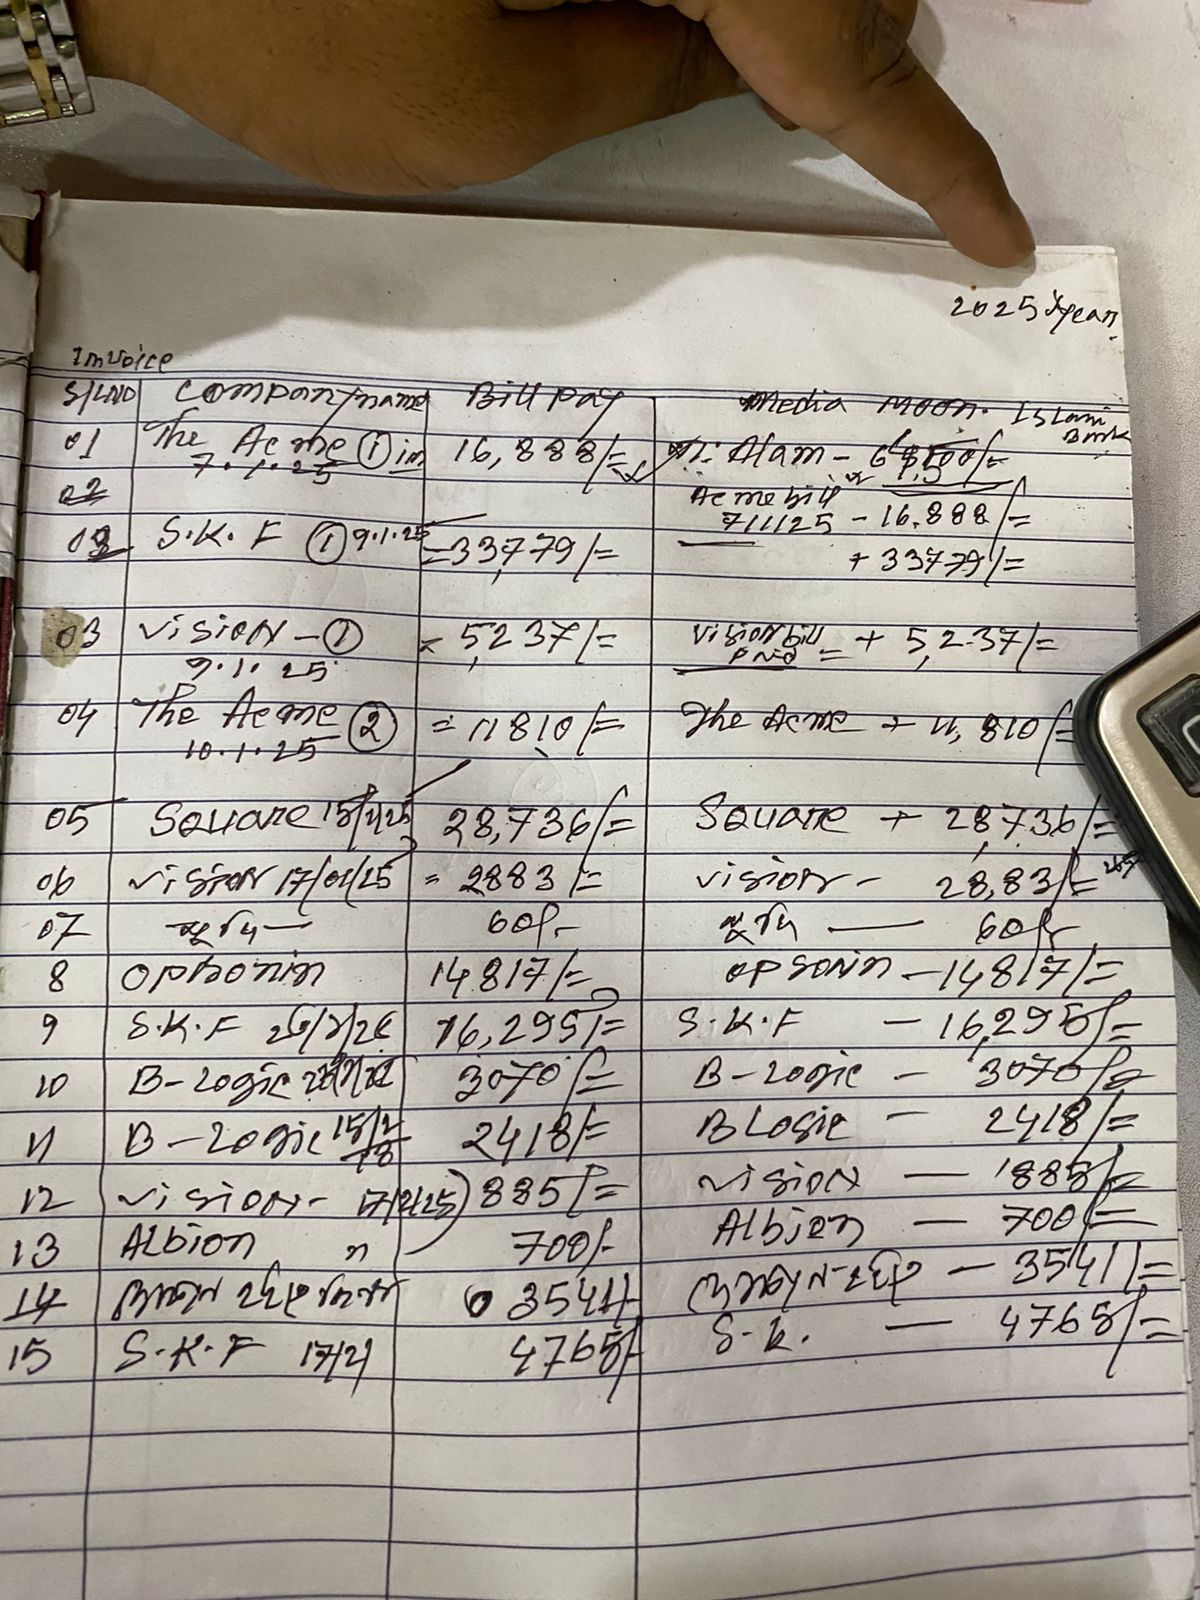 2025 year
Invoice
S/LNO Company name Bill Pay Media Moon. Islami Bank
01 The Acme ① in 16,888/= Alam -
7.1.25
02 Acme bill
7/1/25 - 16.888/=
02 S.K.F ① 9.1.25 =33,779/= + 33779/=
03 Vision - ① 5,237/= Vision bill Paid = + 5,237/=
9.1.25
04 The Acme ② = 11810/= The Acme + 11,810/=
10.1.25
05 Square 28,736/= Square + 28,736/=
06 Vision 17/01/25 = 2883/= Vision - 28,83/=
07 60/- 60/-
8 Opsonin 14817/= Opsonin - 14817/=
9 S.K.F 16,295/= S.K.F - 16,295/=
10 B-Logic 3070/= B-Logic - 3070/=
11 B-Logic 15/2 2418/= BLogic - 2418/=
12 Vision - 17/2/25 885/= Vision - 1885/=
13 Albion " 700/- Albion - 700/=
14 3541/- - 3541/=
15 S.K.F 17/2/ 4765/- S.K. - 4765/=